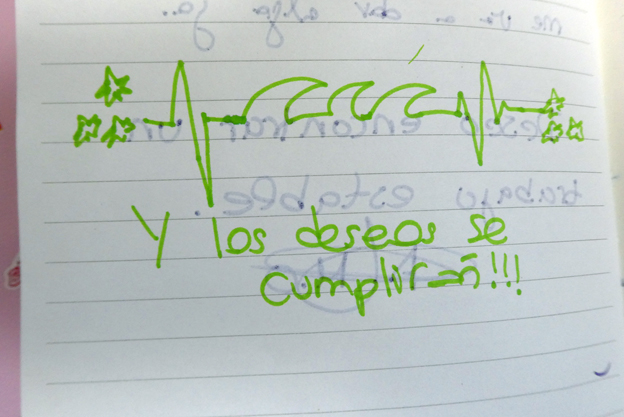 Y los deseos se
cumplirán!!!